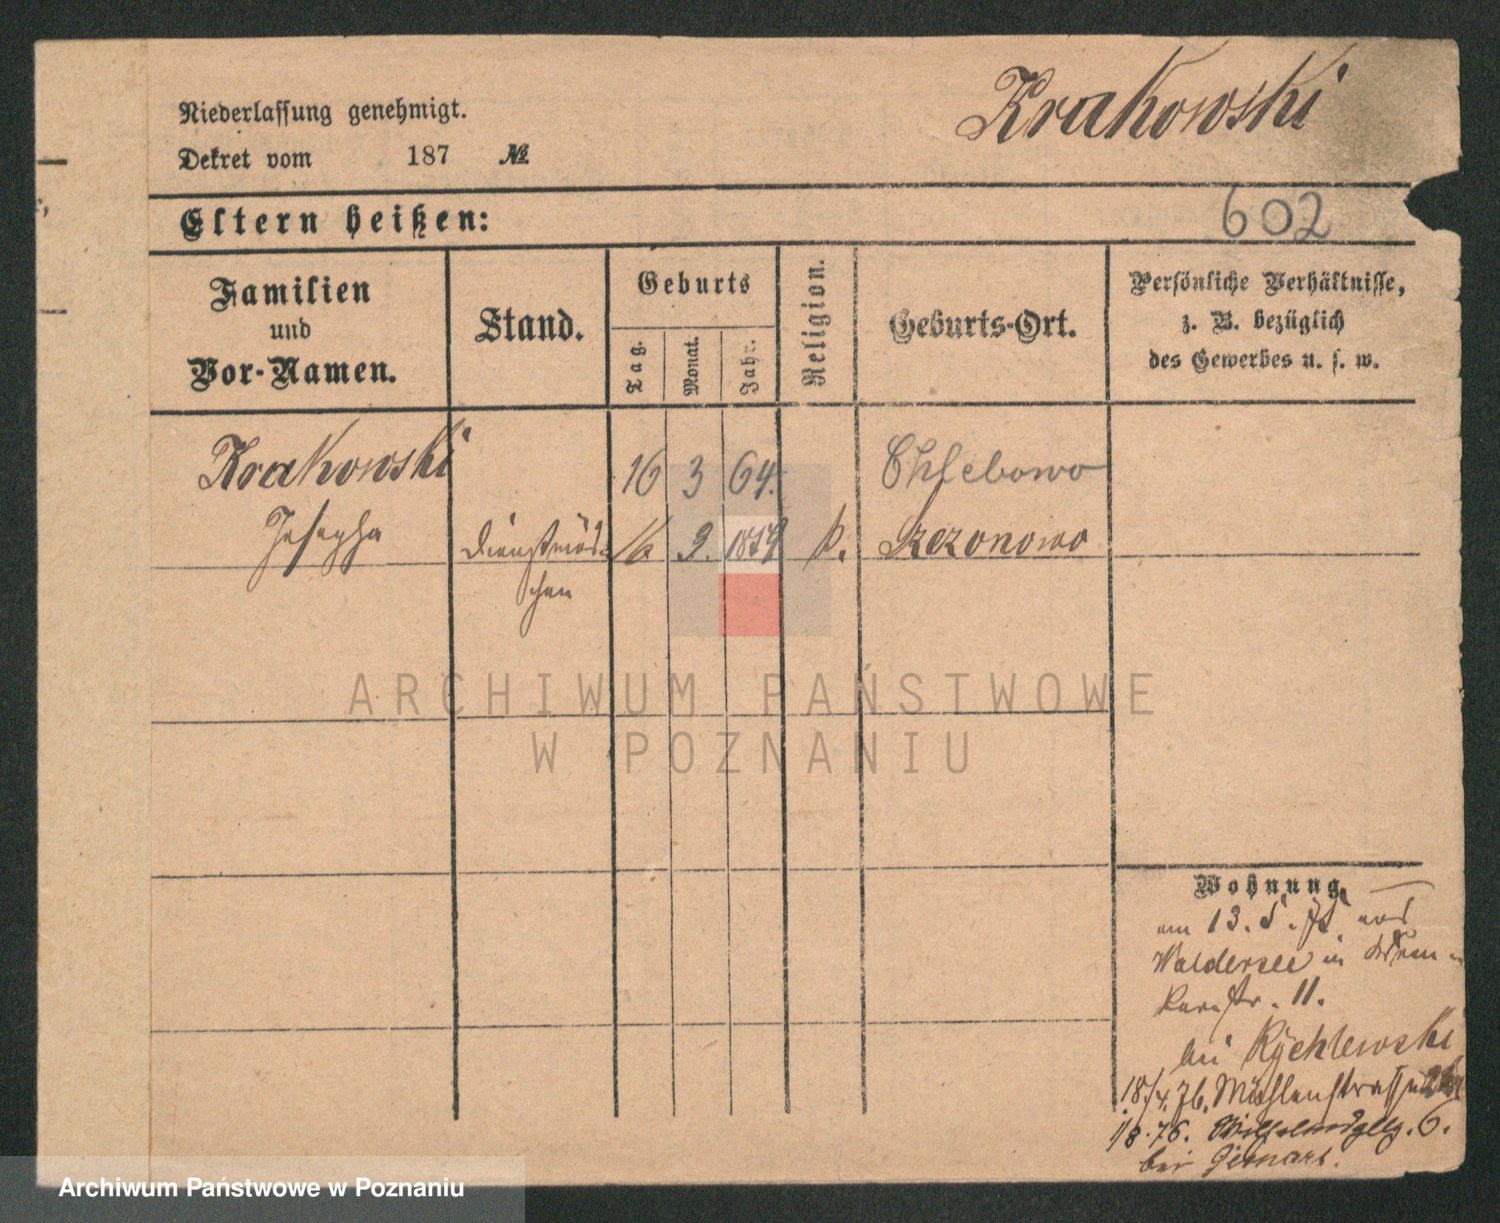 Niederlassung genehmigt.
Krakowski
Dekret vom 187 №
Eltern heißen:
602
Familien
und
Vor-Namen.
Stand.
Geburts
Tag.
Monat.
Jahr.
Religion.
Geburts-Ort.
Persönliche Verhältnisse,
z. B. bezüglich
des Gewerbes u. s. w.
Krakowski 16 3 64. Chlebowo
Josepha Dienstmäd- 16 3. k. Szezonowo
chen
Wohnung
am 13. 5. 75 aus
Waldersee in
str. 11.
bei Rychlewski
18/4. 76. Mühlenstrasse
1/8. 76. 6.
bei
ARCHIWUM PAŃSTWOWE
W POZNANIU
Archiwum Państwowe w Poznaniu